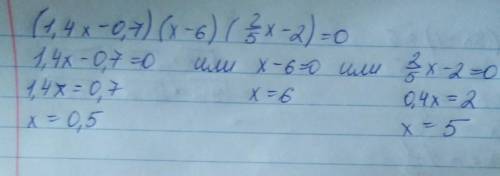 (1,4x-0,7)(x-6)(2/5x-2)=0
1,4x-0,7=0 или x-6=0 или 2/5x-2=0
1,4x=0,7 x=6 0,4x=2
x=0,5 x=5